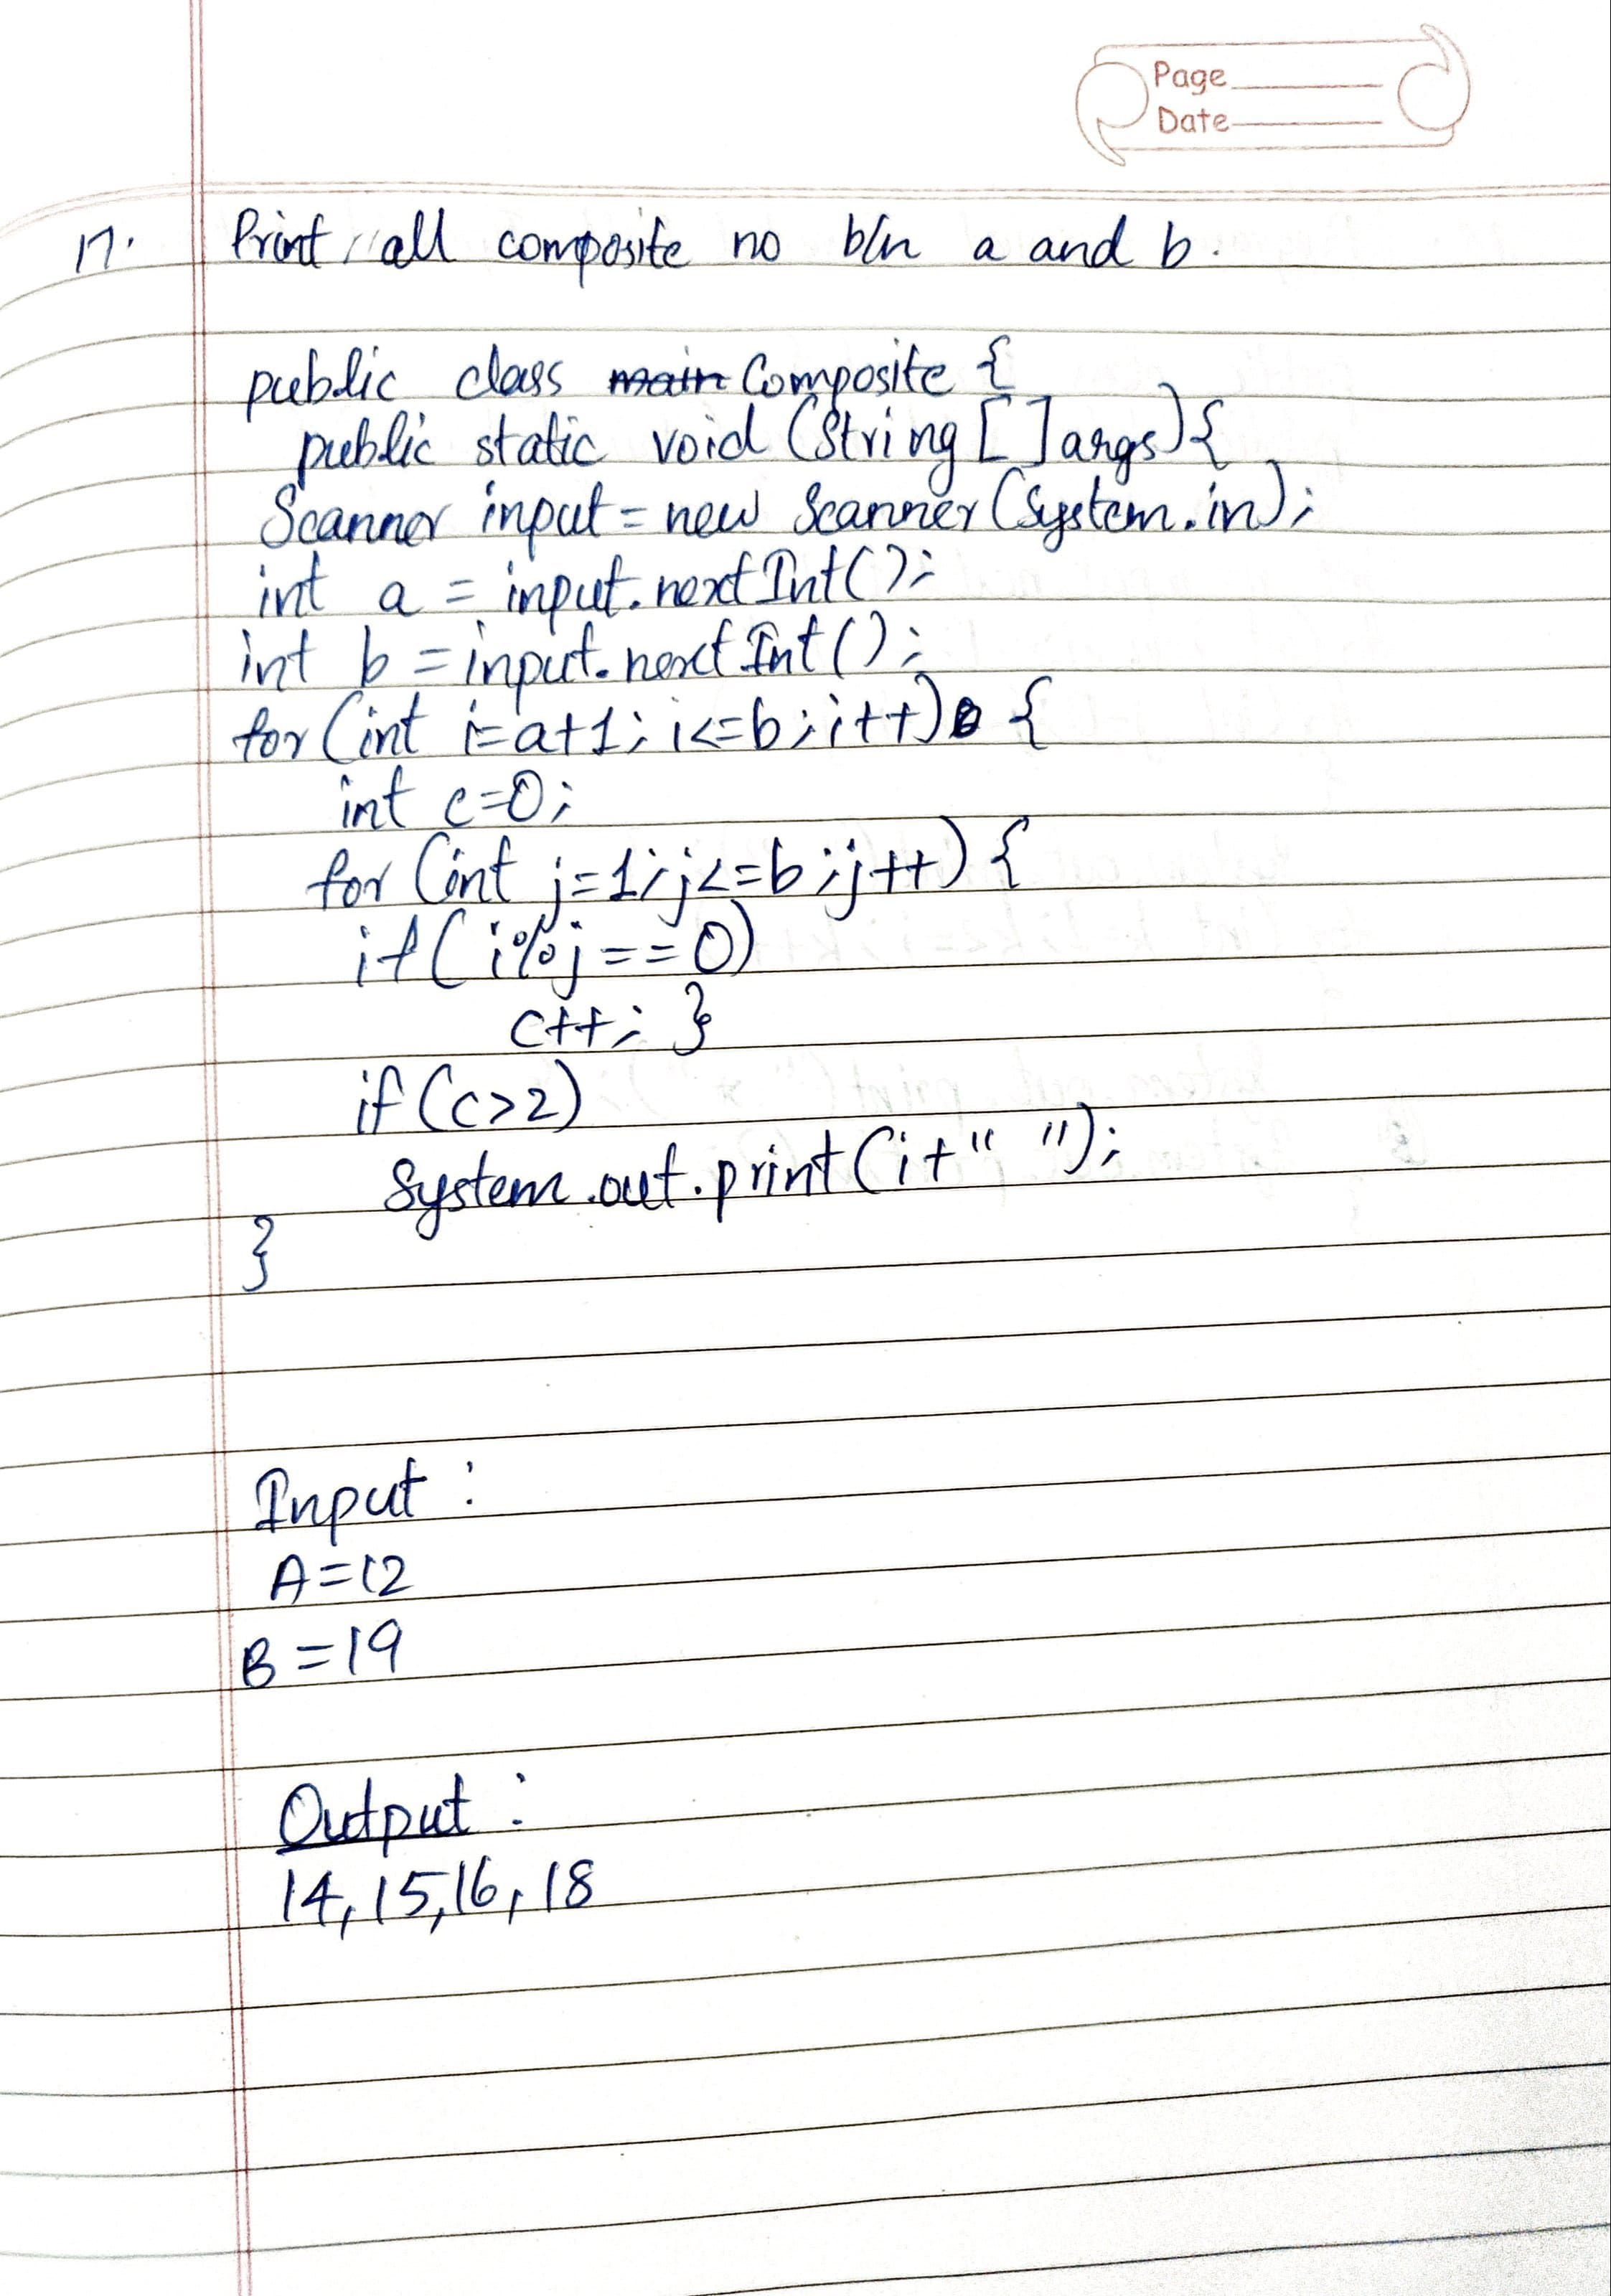 Page
Date
17. Print all composite no b/n a and b.
public class main Composite {
public static void (String [ ] args) {
Scanner input = new Scanner (System.in);
int a = input.nextInt();
int b = input.nextInt();
for (int i=a+1; i<=b; i++) {
int c=0;
for (int j=1; j<=b; j++) {
if ( i%j ==0)
c++; }
if (c>2)
System.out.print (i+" ");
}
Input :
A=12
B=19
Output :
14, 15, 16, 18